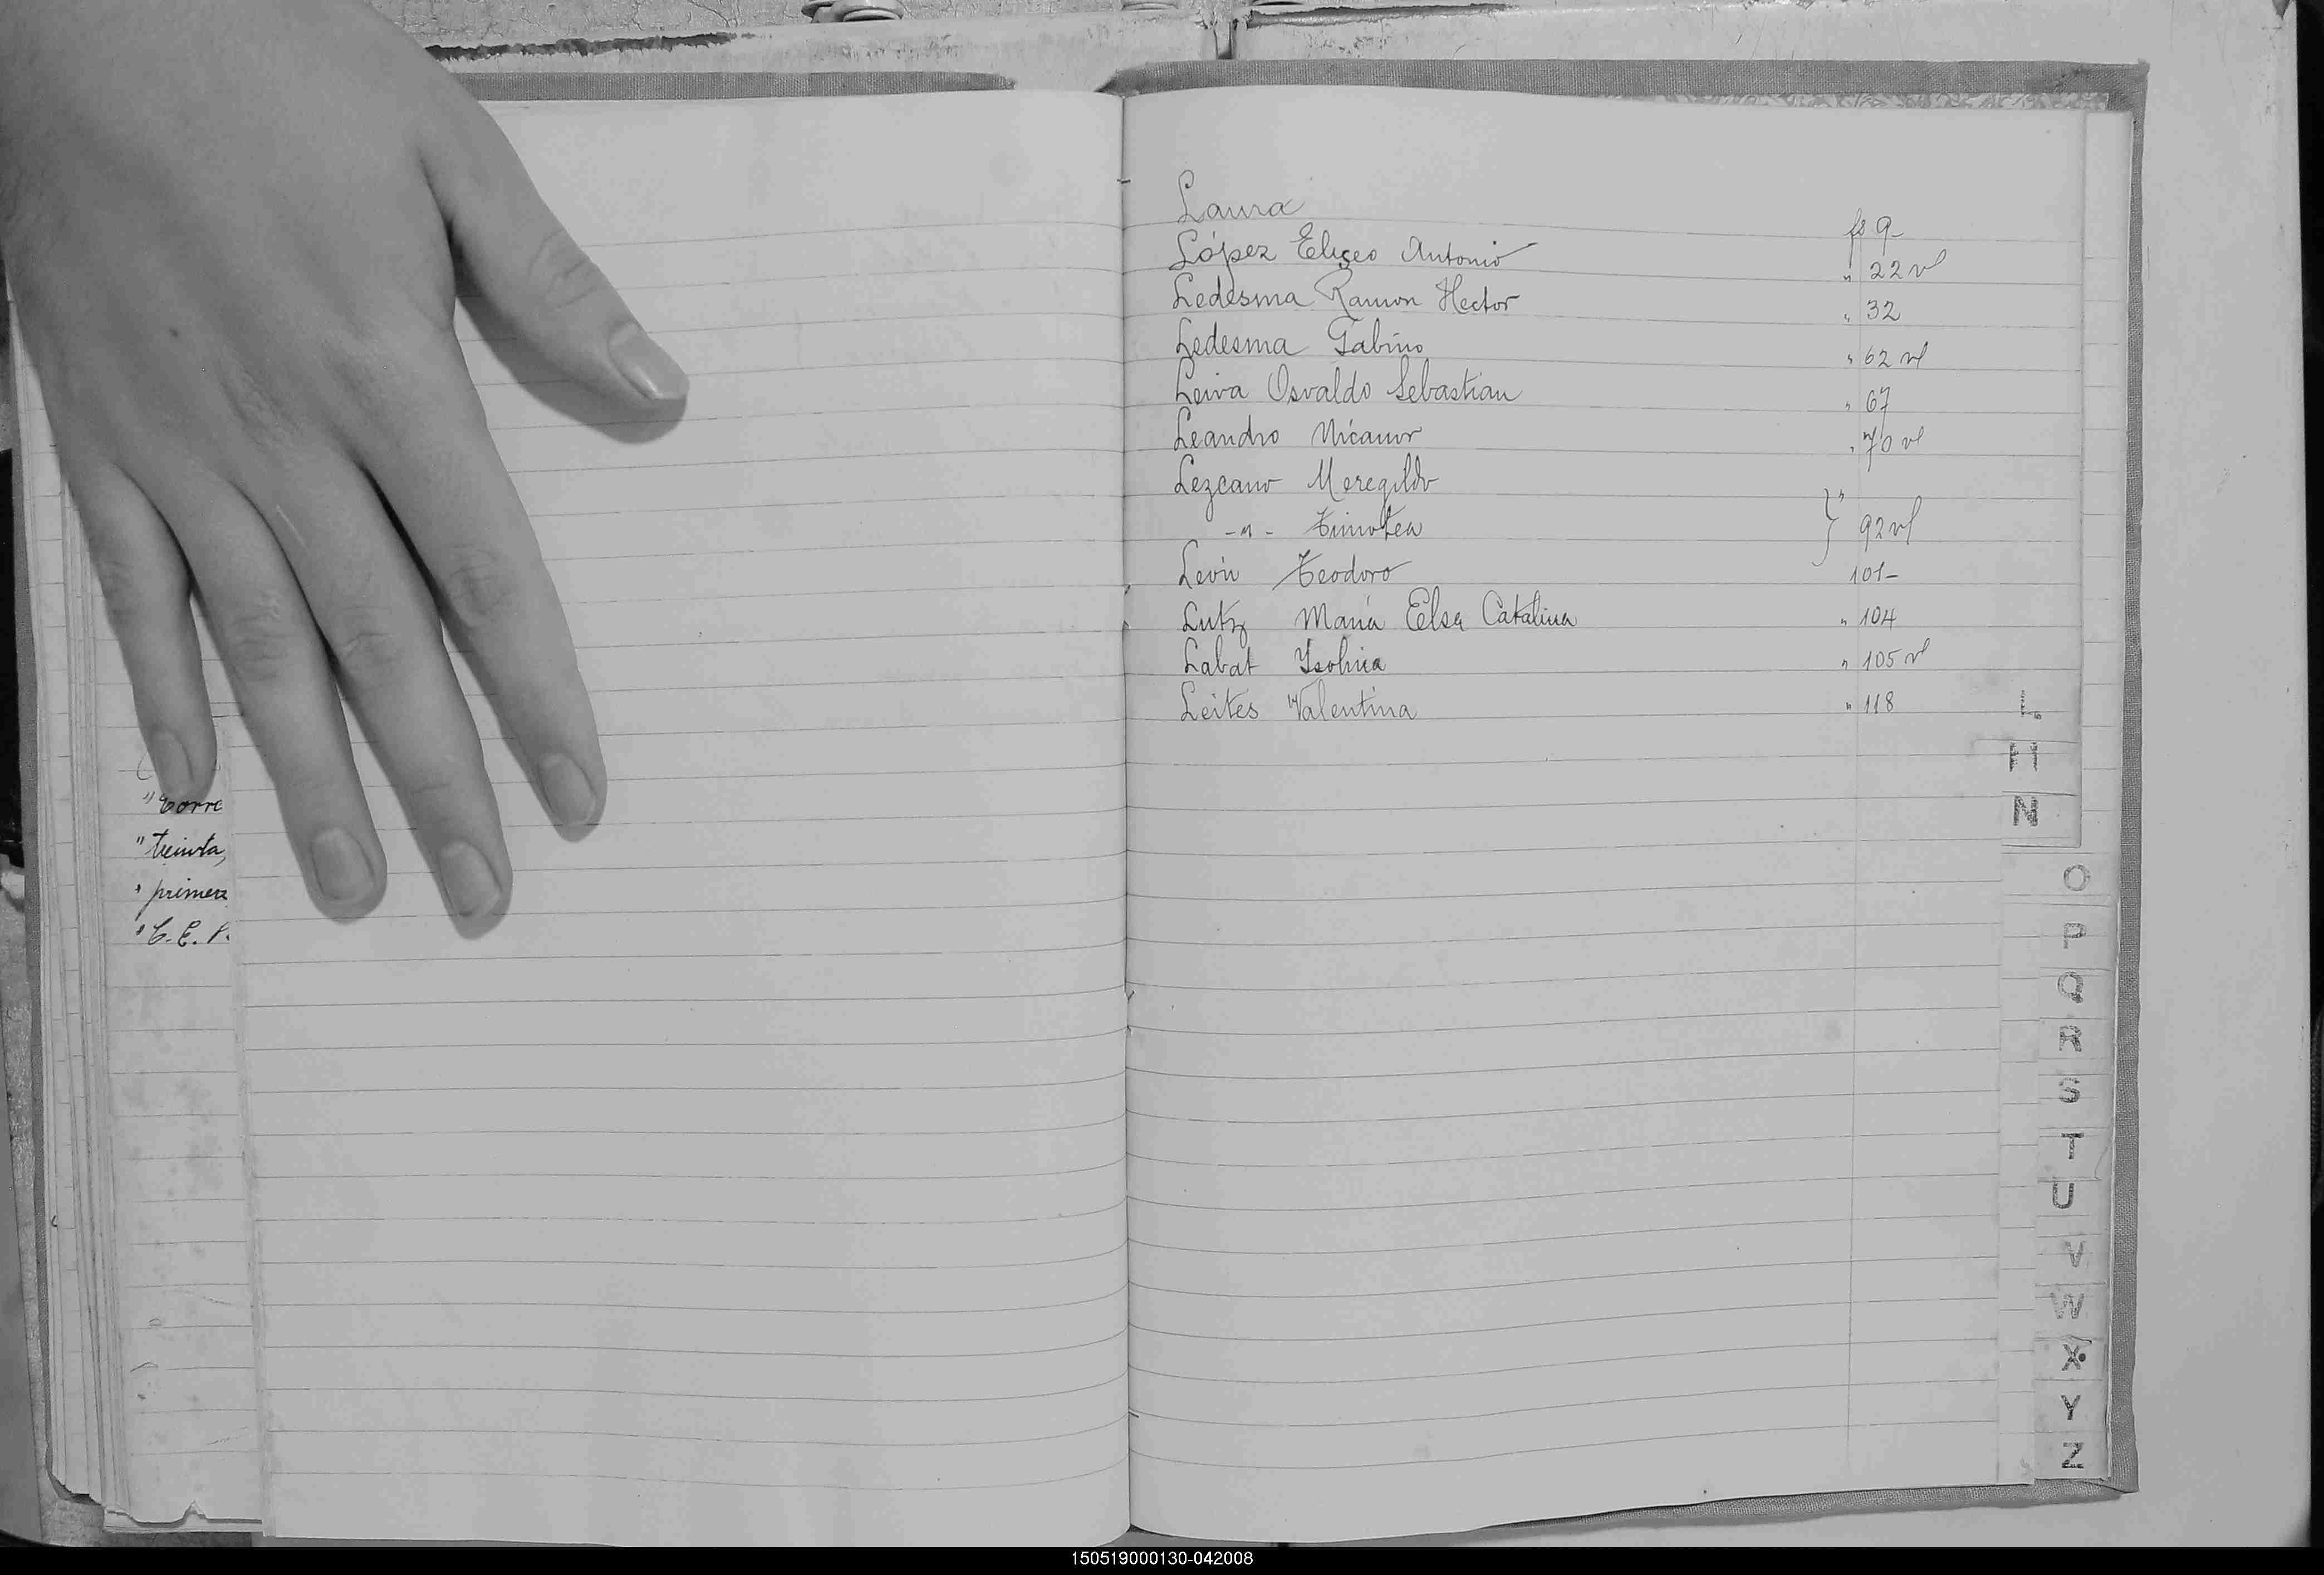 "Corre
"treinta,
" primera
" C. E. P.
Laura fs 9-
López Eliseo Antonio " 22 vl
Ledesma Ramon Hector " 32
Ledesma Gabino " 62 vl
Leiva Osvaldo Sebastian " 67
Leandro Nicanor " 70 vl
Lezcano Meregildo "
-"- Timotea } 92 vl
León Teodoro 101-
Lutz María Elsa Catalina " 104
Labat Ysolina " 105 vl
Leites Valentina " 118
L
M
N
O
P
Q
R
S
T
U
V
W
X
Y
Z
150519000130-042008